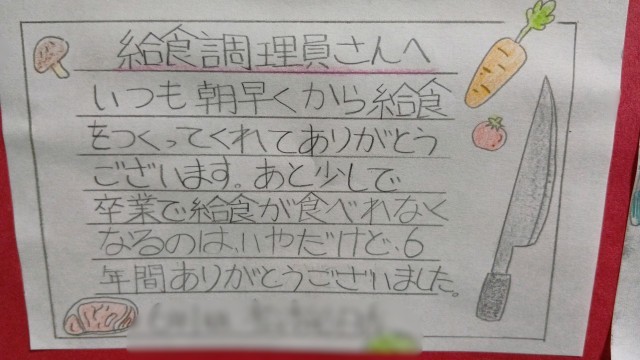 給食調理員さんへ
いつも朝早くから給食
をつくってくれてありがとう
ございます。あと少しで
卒業で給食が食べれなく
なるのは、いやだけど、6
年間ありがとうございました。